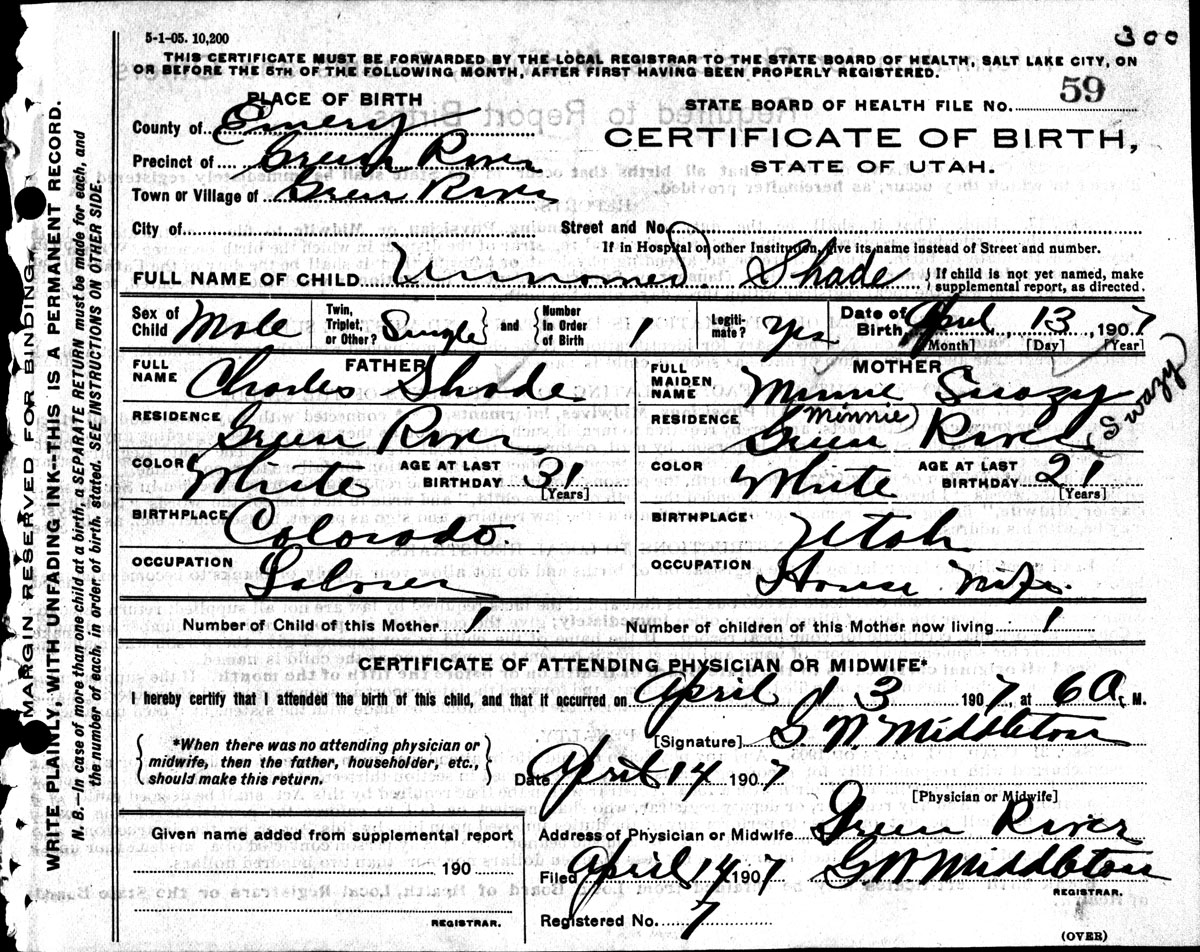 5-1-05. 10,200
300
THIS CERTIFICATE MUST BE FORWARDED BY THE LOCAL REGISTRAR TO THE STATE BOARD OF HEALTH, SALT LAKE CITY, ON
OR BEFORE THE 5TH OF THE FOLLOWING MONTH, AFTER FIRST HAVING BEEN PROPERLY REGISTERED.
PLACE OF BIRTH
STATE BOARD OF HEALTH FILE NO. 59
County of Emery
CERTIFICATE OF BIRTH,
Precinct of Green River
STATE OF UTAH.
Town or Village of Green River
City of
Street and No.
If in Hospital or other Institution, give its name instead of Street and number.
FULL NAME OF CHILD Unnamed. Shade
If child is not yet named, make
supplemental report, as directed.
Sex of Child Male
Twin, Triplet, or Other? Single and Number in Order of Birth 1
Legitimate? Yes
Date of Birth April 13 1907
[Month] [Day] [Year]
FATHER
FULL NAME Charles Shade
RESIDENCE Green River
COLOR White AGE AT LAST BIRTHDAY 31 [Years]
BIRTHPLACE Colorado.
OCCUPATION Laborer
MOTHER
FULL MAIDEN NAME Minnie Swazy
(Minnie Swazy)
RESIDENCE Green River
COLOR White AGE AT LAST BIRTHDAY 21 [Years]
BIRTHPLACE Utah
OCCUPATION House Wife.
Number of Child of this Mother 1 Number of children of this Mother now living 1
CERTIFICATE OF ATTENDING PHYSICIAN OR MIDWIFE*
I hereby certify that I attended the birth of this child, and that it occurred on April 13 1907, at 6 A. M.
*When there was no attending physician or
midwife, then the father, householder, etc.,
should make this return.
[Signature] G. W. Middleton
Date April 14 1907
[Physician or Midwife]
Given name added from supplemental report
190
REGISTRAR.
Address of Physician or Midwife Green River
Filed April 14 1907 G W Middleton
REGISTRAR.
Registered No. 7
(OVER)
MARGIN RESERVED FOR BINDING.
WRITE PLAINLY, WITH UNFADING INK--THIS IS A PERMANENT RECORD.
N. B.--In case of more than one child at a birth, a SEPARATE RETURN must be made for each, and
the number of each, in order of birth, stated. SEE INSTRUCTIONS ON OTHER SIDE.